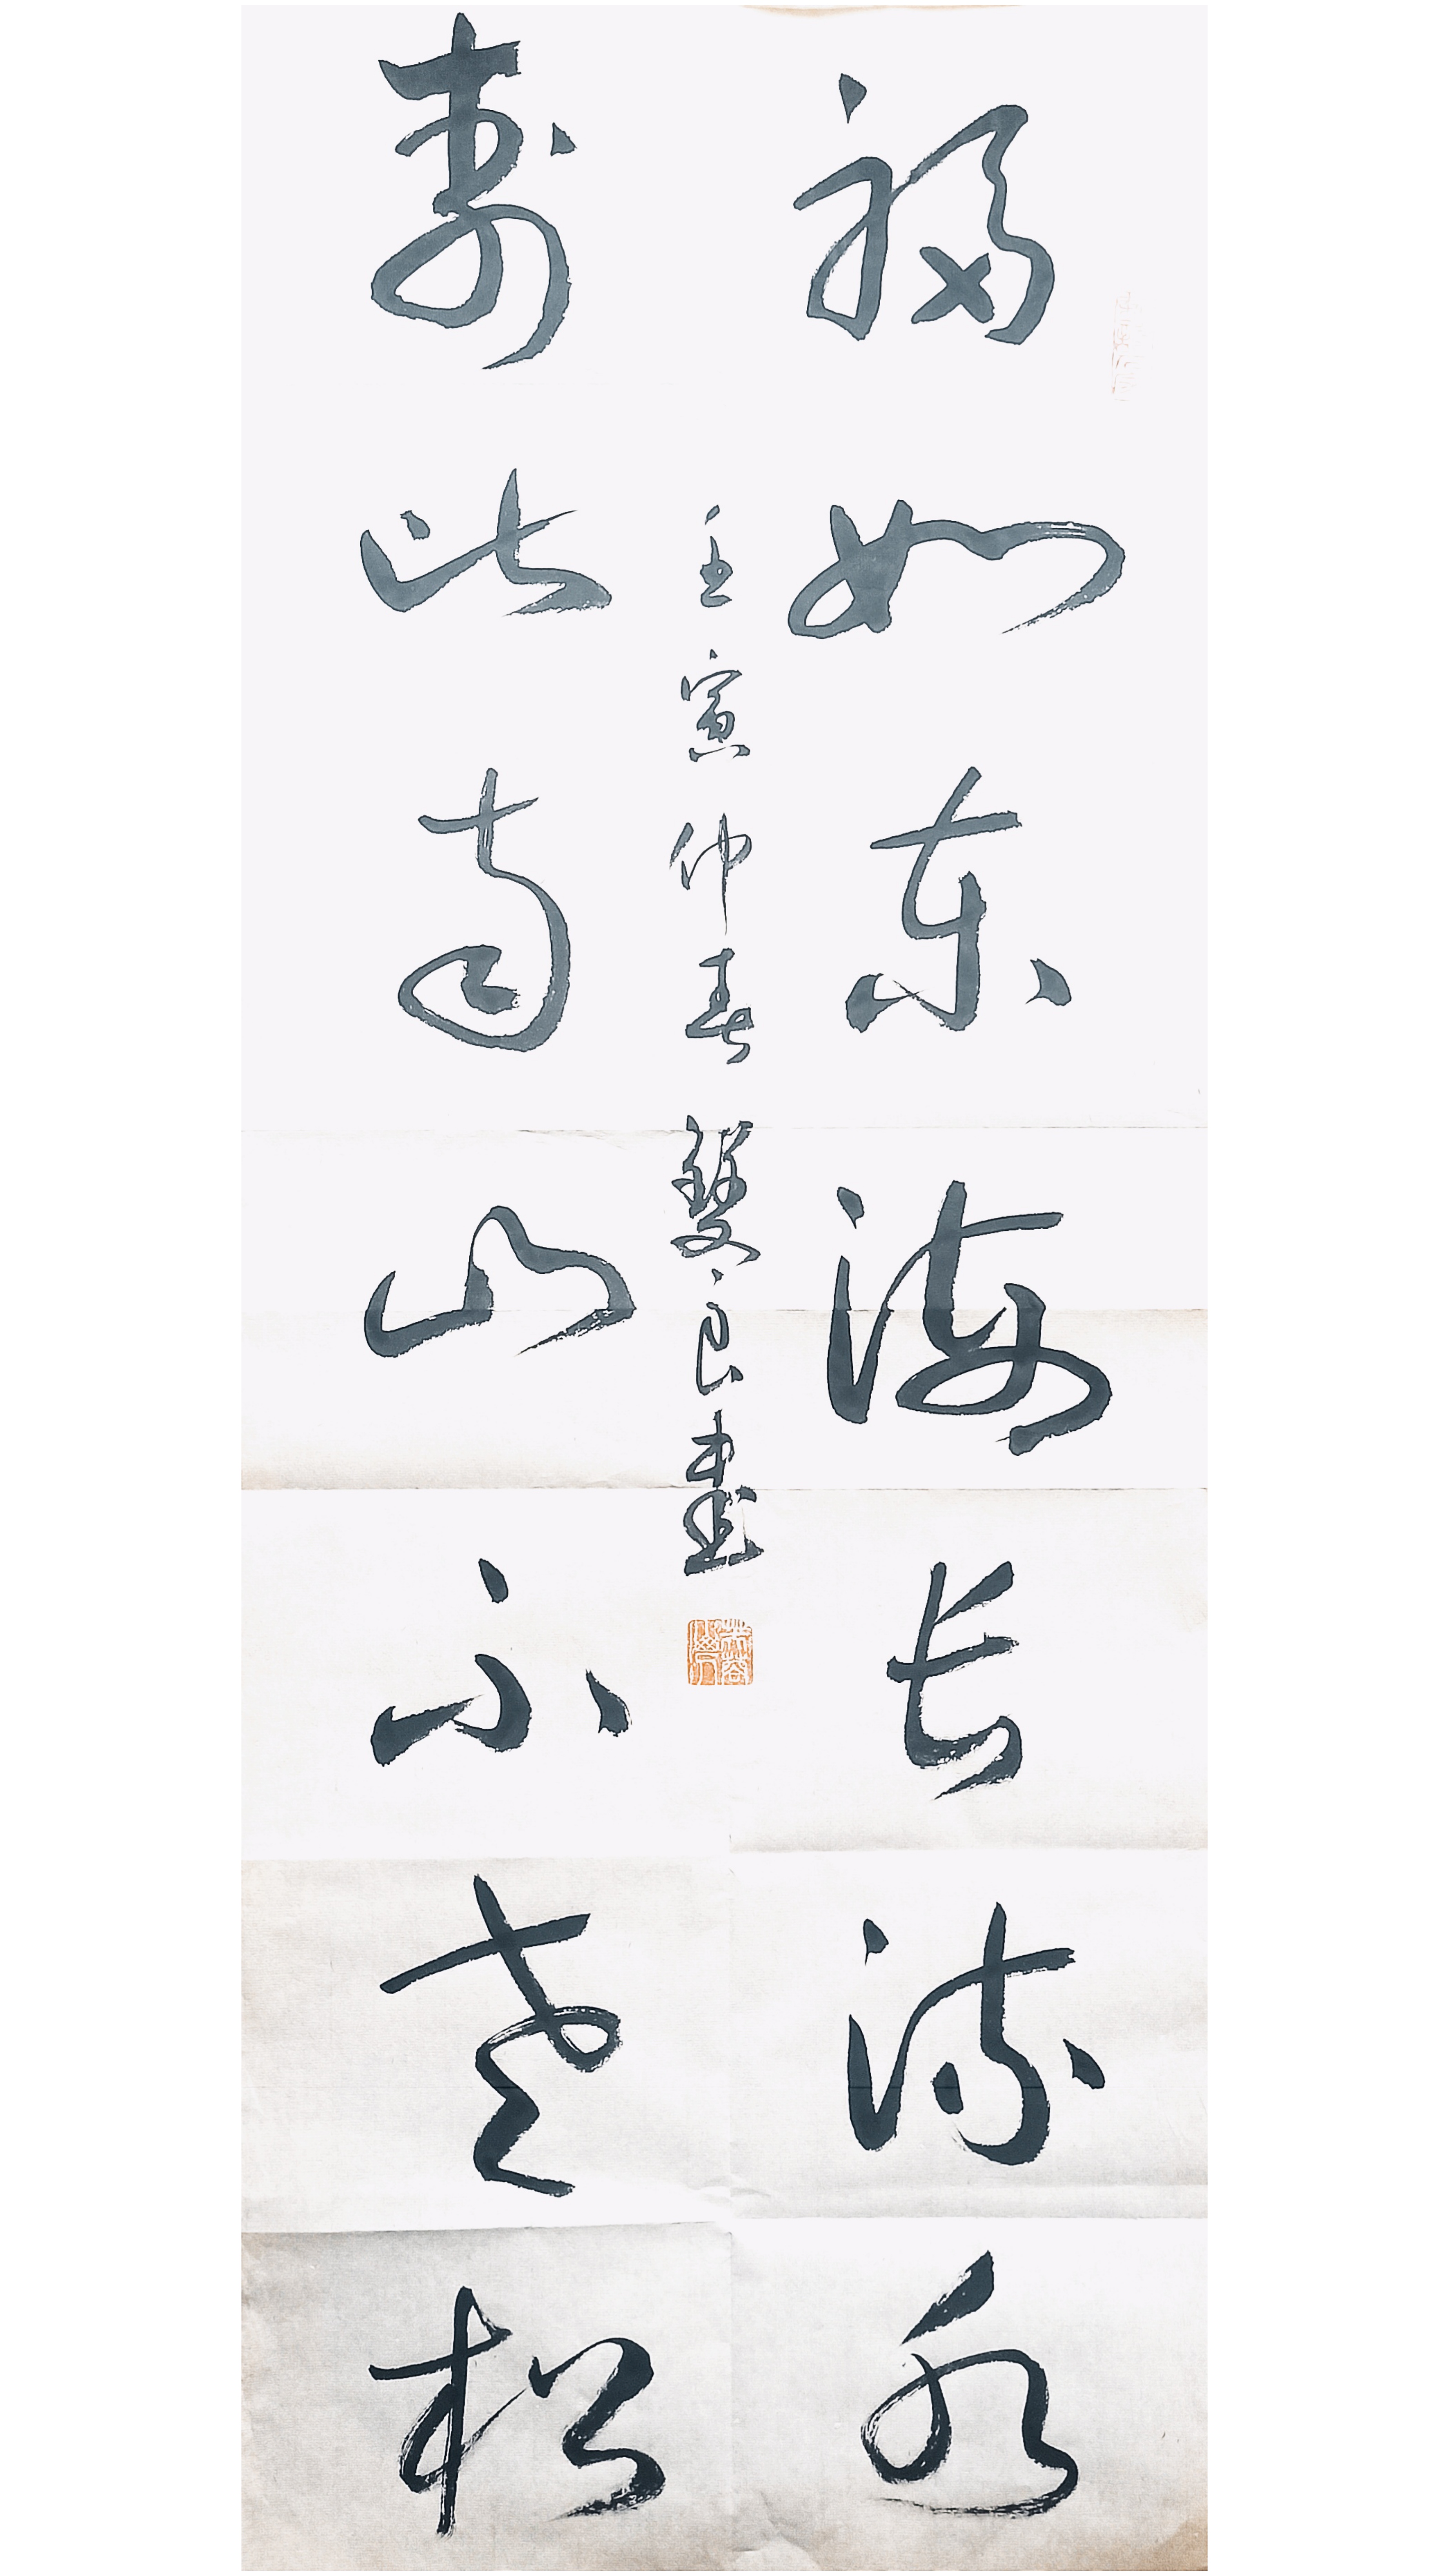 福如东海长流水
寿比南山不老松
壬寅仲春雙良書